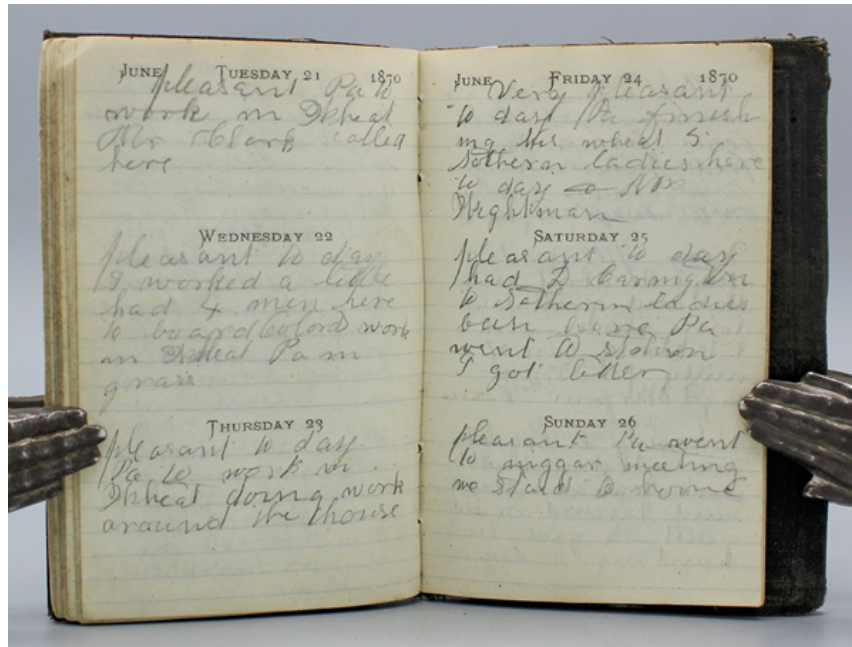 JUNE TUESDAY 21 1870
pleasant Pa to
work in Wheat
Mr Clark called
here
WEDNESDAY 22
pleasant to day
I worked a little
had 4 men here
to board Colord work
in Wheat Pa in
grass
THURSDAY 23
pleasant to day
Pa to work in
Wheat doing work
around the house
JUNE FRIDAY 24 1870
Very pleasant
to day Pa finish
ing his wheat 5
Sothern ladies here
to day
Wightman
SATURDAY 25
pleasant to day
had D Carington
to Sotherin ladies
been here Pa
went to station
I got letter
SUNDAY 26
pleasant Pa went
to niggar meeting
we staid to home